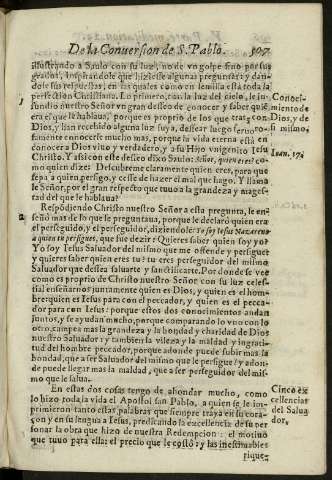 De la Conuersion de S. Pablo. 507
illustrando a Saulo con su luz, no de vn golpe sino por sus
grados, inspirandole que hiziesse algunas preguntas: y dan-
dole sus respuestas, en las quales como en semilla està toda la
perfection Christiana. Lo primero, con la luz del cielo, le in-
fundio nuestro Señor vn gran desseo de conocer y saber quiẽ
era el que le hablaua, porque es proprio de los que tratã con
Dios, y han recebido alguna luz suya, dessear luego feruoro-
samente conocerle mucho mas, porque la vida eterna està en
conocer a Dios viuo y verdadero, y a su Hijo vnigenito Iesu
Christo. Y assi con este desseo dixo Saulo: Señor, quien eres? co-
mo quien dize: Descubreme claramente quien eres, para que
sepa a quien persigo, y cesse de hazer el mal que hago. Y llama
le Señor, por el gran respecto que tuuo a la grandeza y mages-
tad del que le hablaua?
Respõdiendo Christo nuestro Señor a esta pregunta, le en-
señò mas de lo que le preguntaua, porque le declarò quien era
el perseguido, y el perseguidor, diziendole: Yo soy Iesus Nazareno
a quien tu persigues, que fue dezir: Quieres saber quien soy yo?
Yo soy Iesus Saluador del mismo que me ofende y persigue:
y quieres saber quien eres tu? tu eres perseguidor del mismo
Saluador que dessea saluarte y sanctificarte. Por donde se vee
como es proprio de Christo nuestro Señor con su luz celes-
tial enseñarnos juntamente quien es Dios, y quien es el hom-
bre: quien es Iesus para con el peccador, y quien es el pecca-
dor para con Iesus: porque estos dos conocimientos andan
juntos, y se ayudan mucho, porque comparando lo vno con lo
otro, campea mas la grandeza y la bondad y charidad de Dios
nuestro Saluador: y tambien la vileza y la maldad y ingrati-
tud del hombre peccador, porque adonde puede subir mas la
bondad, que a ser Saluador del mismo que le persigue? y adon-
de puede llegar mas la maldad, que a ser perseguidor del mis-
mo que le salua.
En estas dos cosas tengo de ahondar mucho, como
lo hizo toda la vida el Apostol san Pablo, a quien se le im-
primieron tanto estas palabras que siempre traya en su cora-
çon y en su lengua a Iesus, predicando la excellencia de su per
sona: la obra que hizo de nuestra Redempcion: el motiuo
que tuuo para ella: el precio que le costò: y las inestimables
rique-
1
Conoci-
miento de
Dios, y de
si mismo.
Ioan. 17.
2
Cinco ex
cellencias
del Salua
dor.